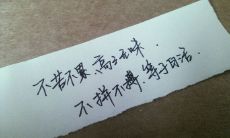 不苦不累,高三无味.
不拼不搏,等于白活.